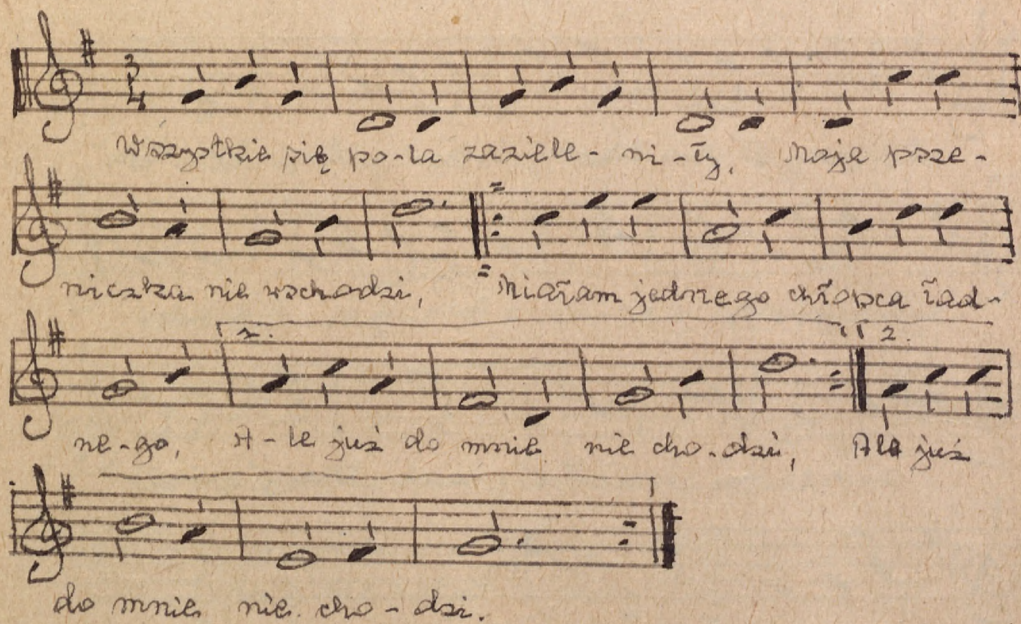 3
4
Wszystkie się po-la zaziele-ni-ły, Moja psze-
niczka nie wschodzi, Miałam jednego chłopca ład-
1. 2.
ne-go, A-le już do mnie nie cho-dzi, Ale już
do mnie nie cho-dzi.